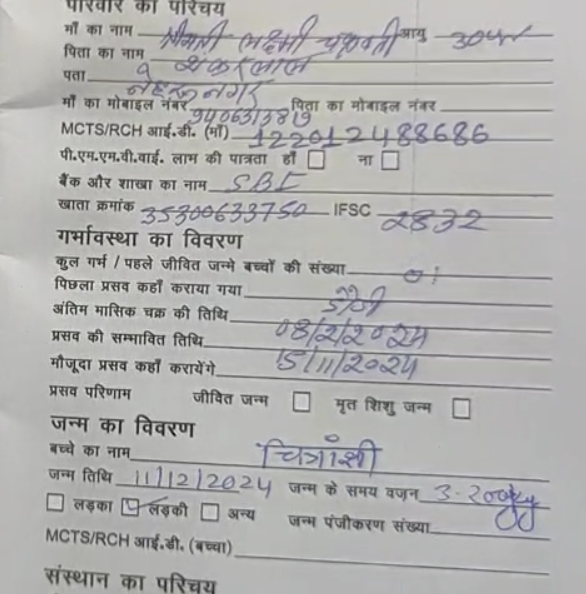 परिवार का परिचय
माँ का नाम श्रीमती लक्ष्मी चक्रवर्ती आयु 30
पिता का नाम शंकरलाल
पता नेहरू नगर
माँ का मोबाइल नंबर पिता का मोबाइल नंबर
MCTS/RCH आई.डी. (माँ) 122012488686
पी.एम.एम.वी.वाई. लाभ की पात्रता हाँ ना
बैंक और शाखा का नाम SBI
खाता क्रमांक 35300633750 IFSC 2832
गर्भावस्था का विवरण
कुल गर्भ / पहले जीवित जन्मे बच्चों की संख्या 01
पिछला प्रसव कहाँ कराया गया
अंतिम मासिक चक्र की तिथि 08/2/2024
प्रसव की सम्भावित तिथि 15/11/2024
मौजूदा प्रसव कहाँ करायेंगे
प्रसव परिणाम जीवित जन्म मृत शिशु जन्म
जन्म का विवरण
बच्चे का नाम चित्रांशी
जन्म तिथि 11/12/2024 जन्म के समय वजन
लड़का लड़की अन्य जन्म पंजीकरण संख्या
MCTS/RCH आई.डी. (बच्चा)
संस्थान का परिचय